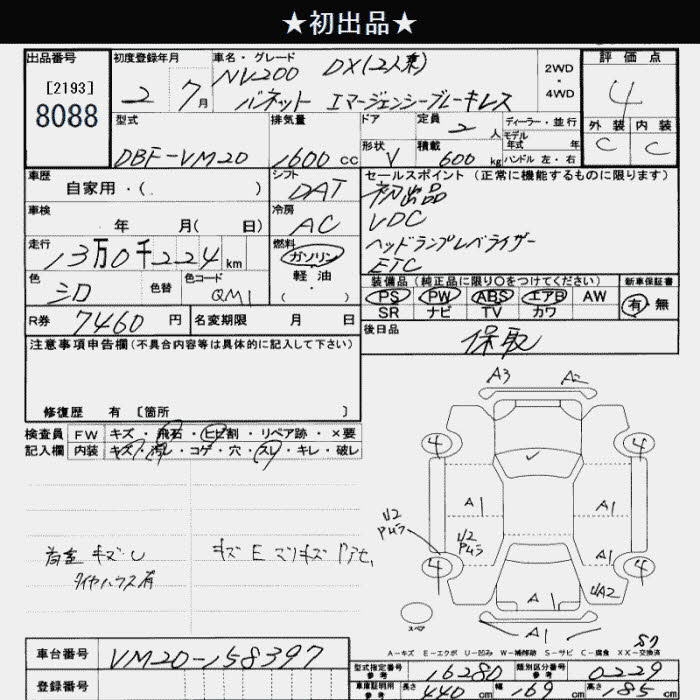 ★初出品★
出品番号
[2193]
8088
初度登録年月
2 7月
車名・グレード
NV200 DX(2人乗)
バネット エマージェンシーブレーキレス
2WD
・
4WD
評価点
4
外装 内装
C C
型式
DBF-VM20
排気量
1600cc
ドア
形状
V
定員
2人
積載
600kg
ディーラー・並行
モデル
年式 年
ハンドル 左・右
車歴
自家用・( )
シフト
DAT
車検
年 月( 日)
冷房
AC
走行
13万0千224km
燃料
ガソリン
軽油
・
( )
色
シロ
色替
色コード
QM1
R券 7460円
名変期限 月 日
セールスポイント(正常に機能するものに限ります)
初出品
VDC
ヘッドランプレベライザー
ETC
装備品(純正品に限り○をつけてください)
PS PW ABS エアB AW
SR ナビ TV カワ
新車保証書
有・無
後日品
保取
注意事項申告欄(不具合内容等は具体的に記入して下さい)
修復歴 有 〔箇所 〕
検査員 FW キズ・飛石・ヒビ割・リペア跡・×要
記入欄 内装 キズ・汚レ・コゲ・穴・スレ・キレ・破レ
荷室 キズU
タイヤハウス有
キズ E
A3 A2
4 4
A1 A1
U2
U2
A1
4 4
A1
A1
スペア
A-キズ E-エクボ U-凹み W-補修跡 S-サビ C-腐食 XX-交換済
車台番号 VM20-158397
登録番号
型式指定番号
参考
16280
類別区分番号
参考
0229
車庫証明用
参考
長さ 440cm 幅 169cm 高さ 185cm